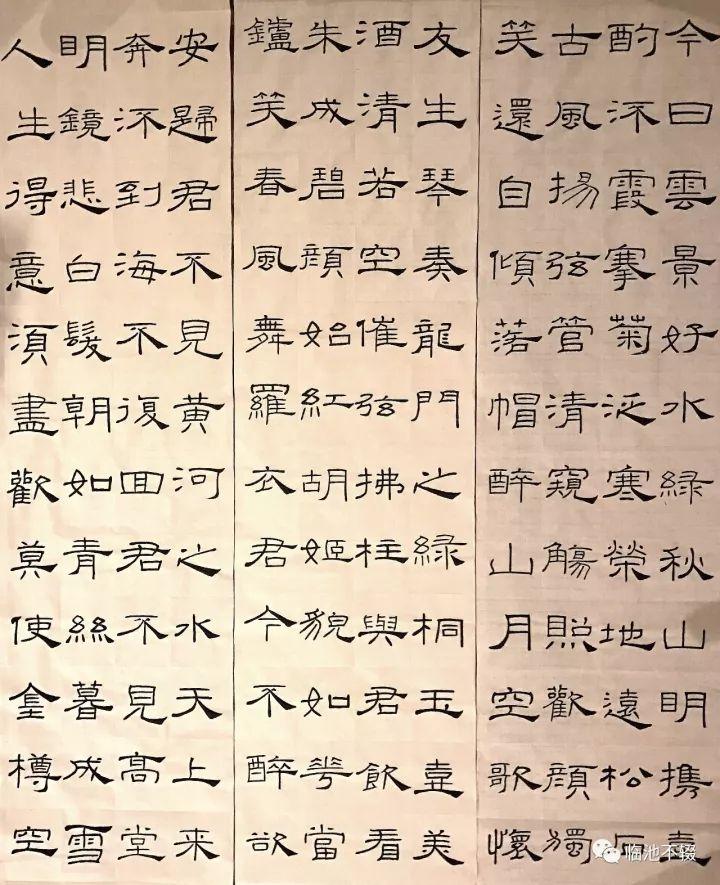 今日雲景好水綠秋山明携壺
酌流霞搴菊泛寒榮地遠松石
古風揚弦管清窺觴照歡顏獨
笑還自傾落帽醉山月空歌懷
友生琴奏龍門之綠桐玉壺美
酒清若空催弦拂柱與君飲看
朱成碧顏始紅胡姬貌如花當
鑪笑春風舞羅衣君今不醉欲
安歸君不見黃河之水天上来
奔流到海不復回君不見高堂
明鏡悲白髮朝如青絲暮成雪
人生得意須盡歡莫使金樽空
临池不辍